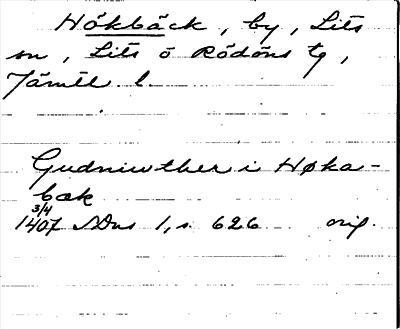 Hökbäck, by, Lits
sn, Lits o Rödöns tg,
Jämtl l.
Gudniuther i Høka-
bæk
3/4
1407 SDns 1, s. 626 orig.